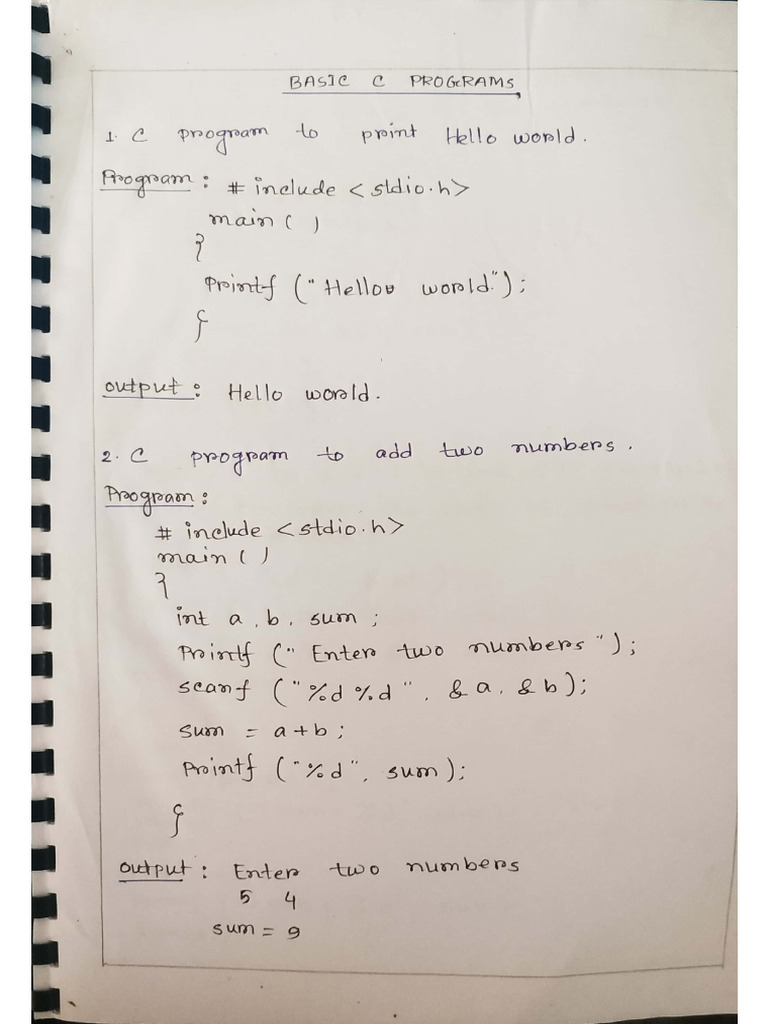 BASIC C PROGRAMS
1. C program to print Hello world.
Program : # include <stdio.h>
main ( )
{
Printf ("Hellow world.");
}
output : Hello world.
2. C program to add two numbers.
Program :
# include <stdio.h>
main ( )
{
int a, b, sum ;
Printf (" Enter two numbers ");
scanf ("%d %d", &a, &b);
sum = a+b ;
Printf ("%d", sum);
}
output : Enter two numbers
5 4
sum = 9